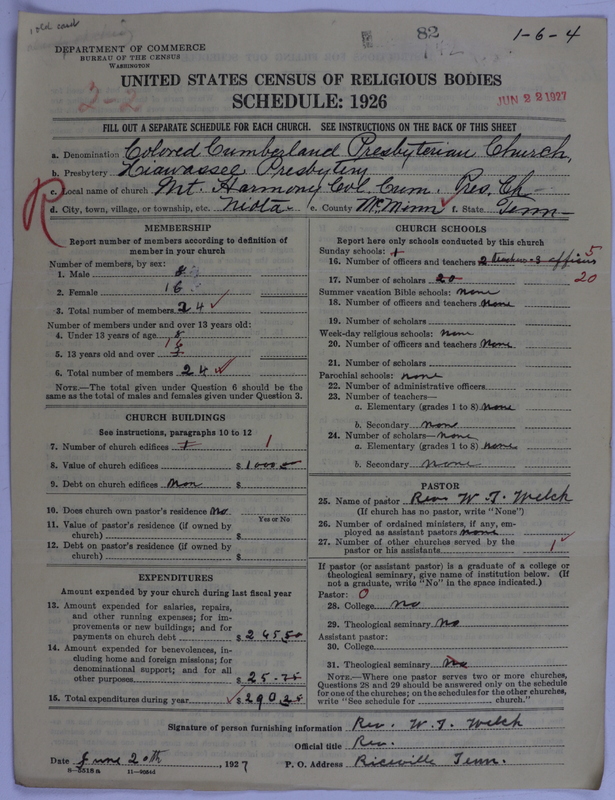 82
1-6-4
DEPARTMENT OF COMMERCE
BUREAU OF THE CENSUS
WASHINGTON
2-2
UNITED STATES CENSUS OF RELIGIOUS BODIES
SCHEDULE: 1926
JUN 22 1927
FILL OUT A SEPARATE SCHEDULE FOR EACH CHURCH. SEE INSTRUCTIONS ON THE BACK OF THIS SHEET
a. Denomination Colored Cumberland Presbyterian Church,
b. Presbytery Hiawassee Presbytery
R
c. Local name of church Mt. Harmony Col. Cum. Pres. Ch
d. City, town, village, or township, etc. Niota e. County McMinn f. State Tenn
MEMBERSHIP
Report number of members according to definition of member in your church
Number of members, by sex:
1. Male 8
2. Female 16
3. Total number of members 24
Number of members under and over 13 years old:
4. Under 13 years of age
5. 13 years old and over
6. Total number of members 24
NOTE.—The total given under Question 6 should be the
same as the total of males and females given under Question 3.
CHURCH BUILDINGS
See instructions, paragraphs 10 to 12
7. Number of church edifices 1 1
8. Value of church edifices $ 1000
9. Debt on church edifices non
10. Does church own pastor's residence No.
Yes or No
11. Value of pastor's residence (if owned by
church) $
12. Debt on pastor's residence (if owned by
church) $
EXPENDITURES
Amount expended by your church during last fiscal year
13. Amount expended for salaries, repairs,
and other running expenses; for im-
provements or new buildings; and for
payments on church debt $ 265.50
14. Amount expended for benevolences, in-
cluding home and foreign missions; for
denominational support; and for all
other purposes $ 25.75
15. Total expenditures during year $ 290.25
CHURCH SCHOOLS
Report here only schools conducted by this church
Sunday schools: 1
16. Number of officers and teachers 2 teachers 3 officers 5
17. Number of scholars 20 20
Summer vacation Bible schools: none
18. Number of officers and teachers none
19. Number of scholars
Week-day religious schools: none
20. Number of officers and teachers none
21. Number of scholars
Parochial schools: none
22. Number of administrative officers
23. Number of teachers—
a. Elementary (grades 1 to 8) none
b. Secondary none
24. Number of scholars— none
a. Elementary (grades 1 to 8) none
b. Secondary none
PASTOR
25. Name of pastor Rev W. T. Welch
(If church has no pastor, write "None")
26. Number of ordained ministers, if any, em-
ployed as assistant pastors none
27. Number of other churches served by the
pastor or his assistants 1
If pastor (or assistant pastor) is a graduate of a college or
theological seminary, give name of institution below. (If
not a graduate, write "No" in the space indicated.)
Pastor: 0
28. College No
29. Theological seminary No
Assistant pastor:
30. College
31. Theological seminary No
NOTE.—Where one pastor serves two or more churches,
Questions 28 and 29 should be answered only on the schedule
for one of the churches; on the schedules for the other churches,
write "See schedule for church."
Signature of person furnishing information Rev. W. T. Welch
Official title Rev.
Date June 20th, 1927 P. O. Address Riceville Tenn.
8-5518a 11-9564d